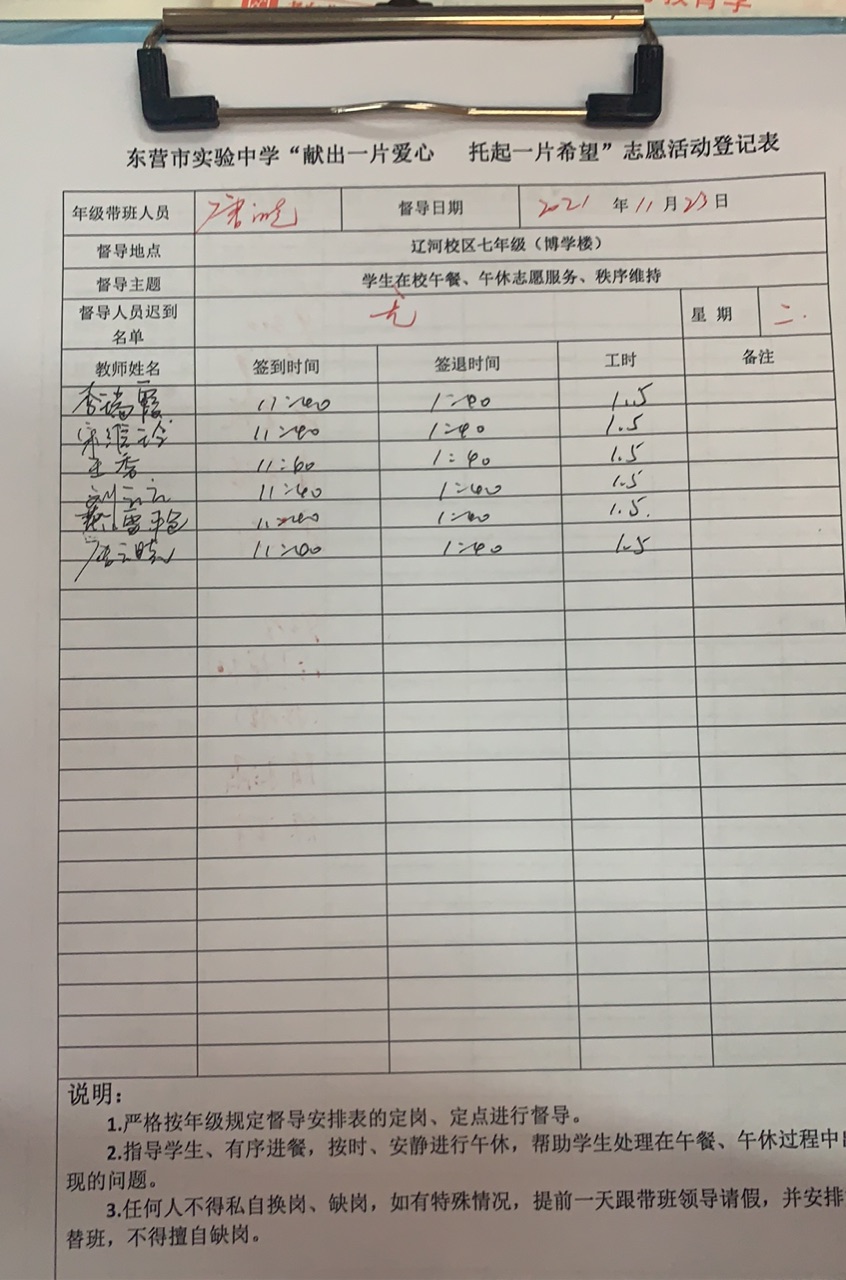 东营市实验中学“献出一片爱心 托起一片希望”志愿活动登记表
年级带班人员 督导日期 2021 年 11 月 23 日
督导地点 辽河校区七年级（博学楼）
督导主题 学生在校午餐、午休志愿服务、秩序维持
督导人员迟到名单 无 星 期 二.
教师姓名 签到时间 签退时间 工时 备注
李瑞霞 11:40 1:40 1.5
11:40 1:40 1.5
王香 1:40 1.5
刘云云 11:40 1:40 1.5
11:40 1:40 1.5.
1:40 1.5
说明：
1.严格按年级规定督导安排表的定岗、定点进行督导。
2.指导学生、有序进餐，按时、安静进行午休，帮助学生处理在午餐、午休过程中
现的问题。
3.任何人不得私自换岗、缺岗，如有特殊情况，提前一天跟带班领导请假，并安排
替班，不得擅自缺岗。